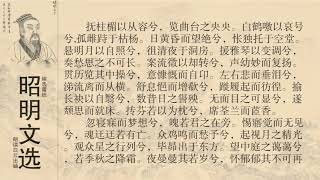 昭明文选
抚柱楣以从容兮，览曲台之央央。白鹤噭以哀号
兮，孤雌跱于枯杨。日黄昏而望绝兮，怅独托于空堂。
悬明月以自照兮，徂清夜于洞房。援雅琴以变调兮，
奏愁思之不可长。案流徵以却转兮，声幼妙而复扬。
贯历览其中操兮，意慷慨而自卬。左右悲而垂泪兮，
涕流离而从横。舒息悒而增欷兮，蹝履起而彷徨。揄
长袂以自翳兮，数昔日之諐殃。无面目之可显兮，遂
颓思而就床。抟芬若以为枕兮，席荃兰而茝香。
忽寝寐而梦想兮，魄若君之在旁。惕寤觉而无见
兮，魂迋迋若有亡。众鸡鸣而愁予兮，起视月之精光。
观众星之行列兮，毕昴出于东方。望中庭之蔼蔼兮，
若季秋之降霜。夜曼曼其若岁兮，怀郁郁其不可再